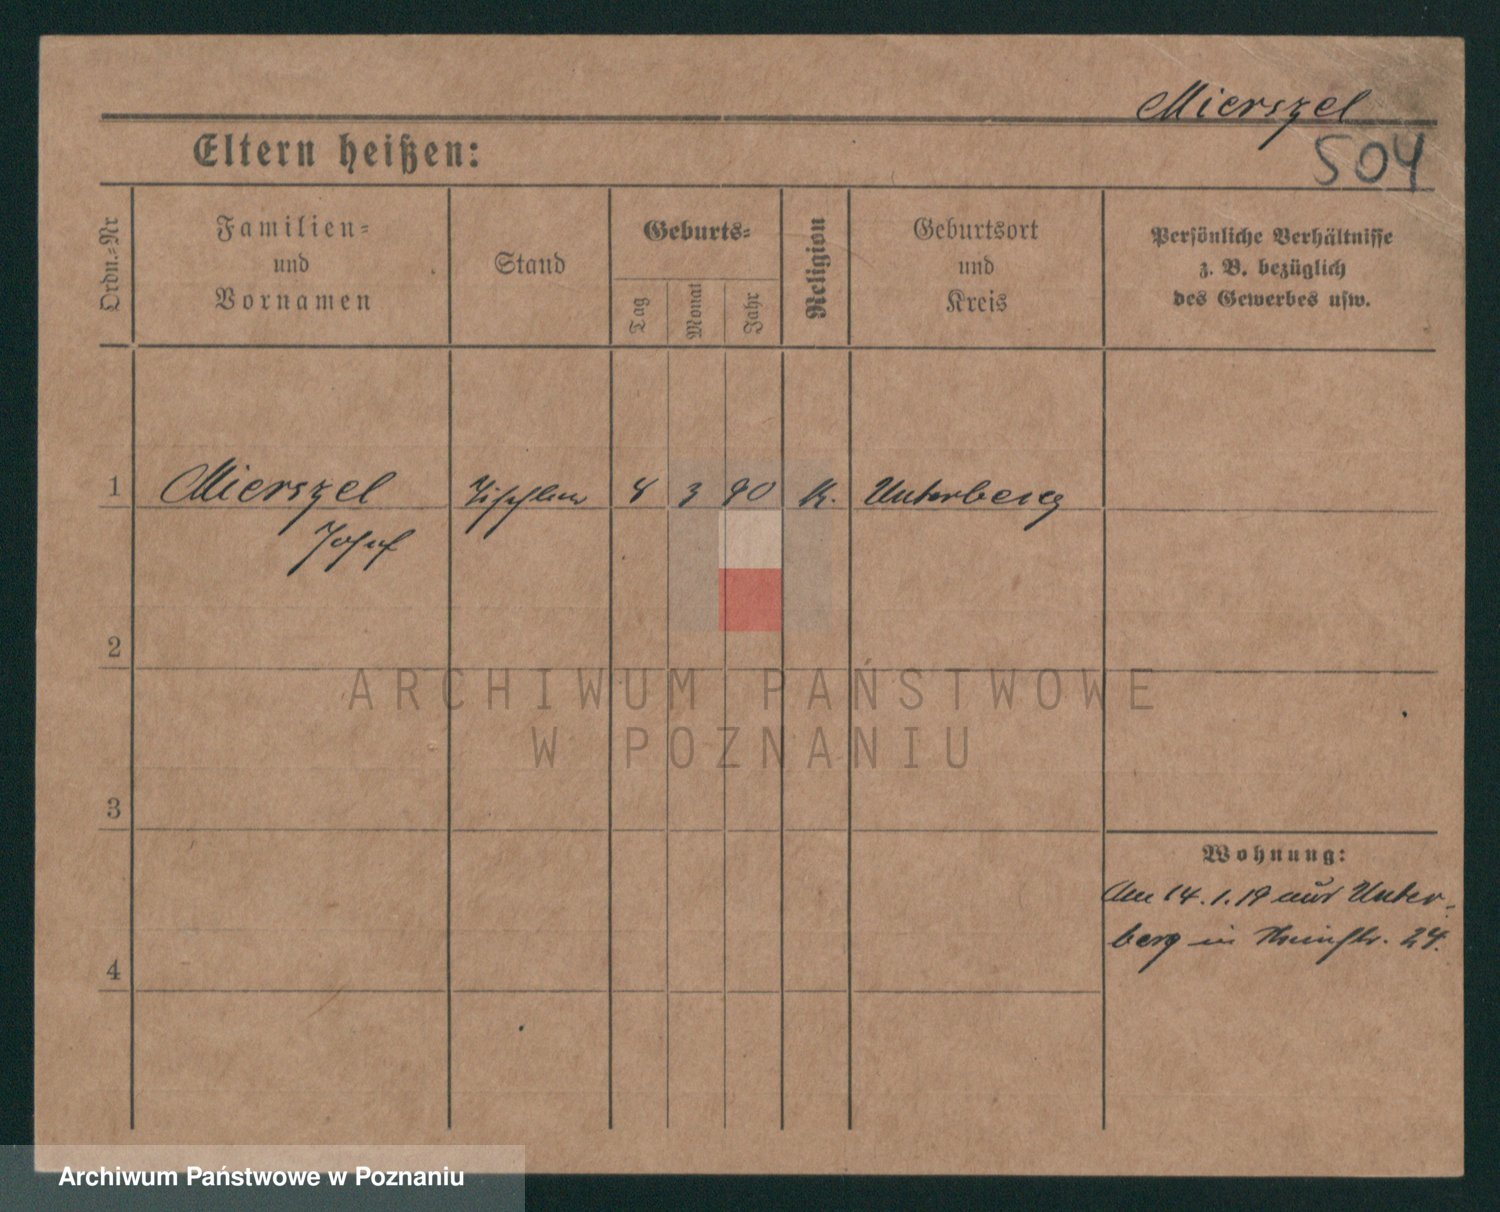 Mierszel
504
Eltern heißen:
Ordn.-Nr
Familien-
und
Vornamen
Stand
Geburts-
Tag
Monat
Jahr
Religion
Geburtsort
und
Kreis
Persönliche Verhältnisse
z. B. bezüglich
des Gewerbes usw.
1 Mierszel Tischler 8 3 90 K. Unterberg
Josef
2
ARCHIWUM PAŃSTWOWE
W POZNANIU
3
Wohnung:
Am 14.1.19 aus Unter-
berg in 24.
4
Archiwum Państwowe w Poznaniu